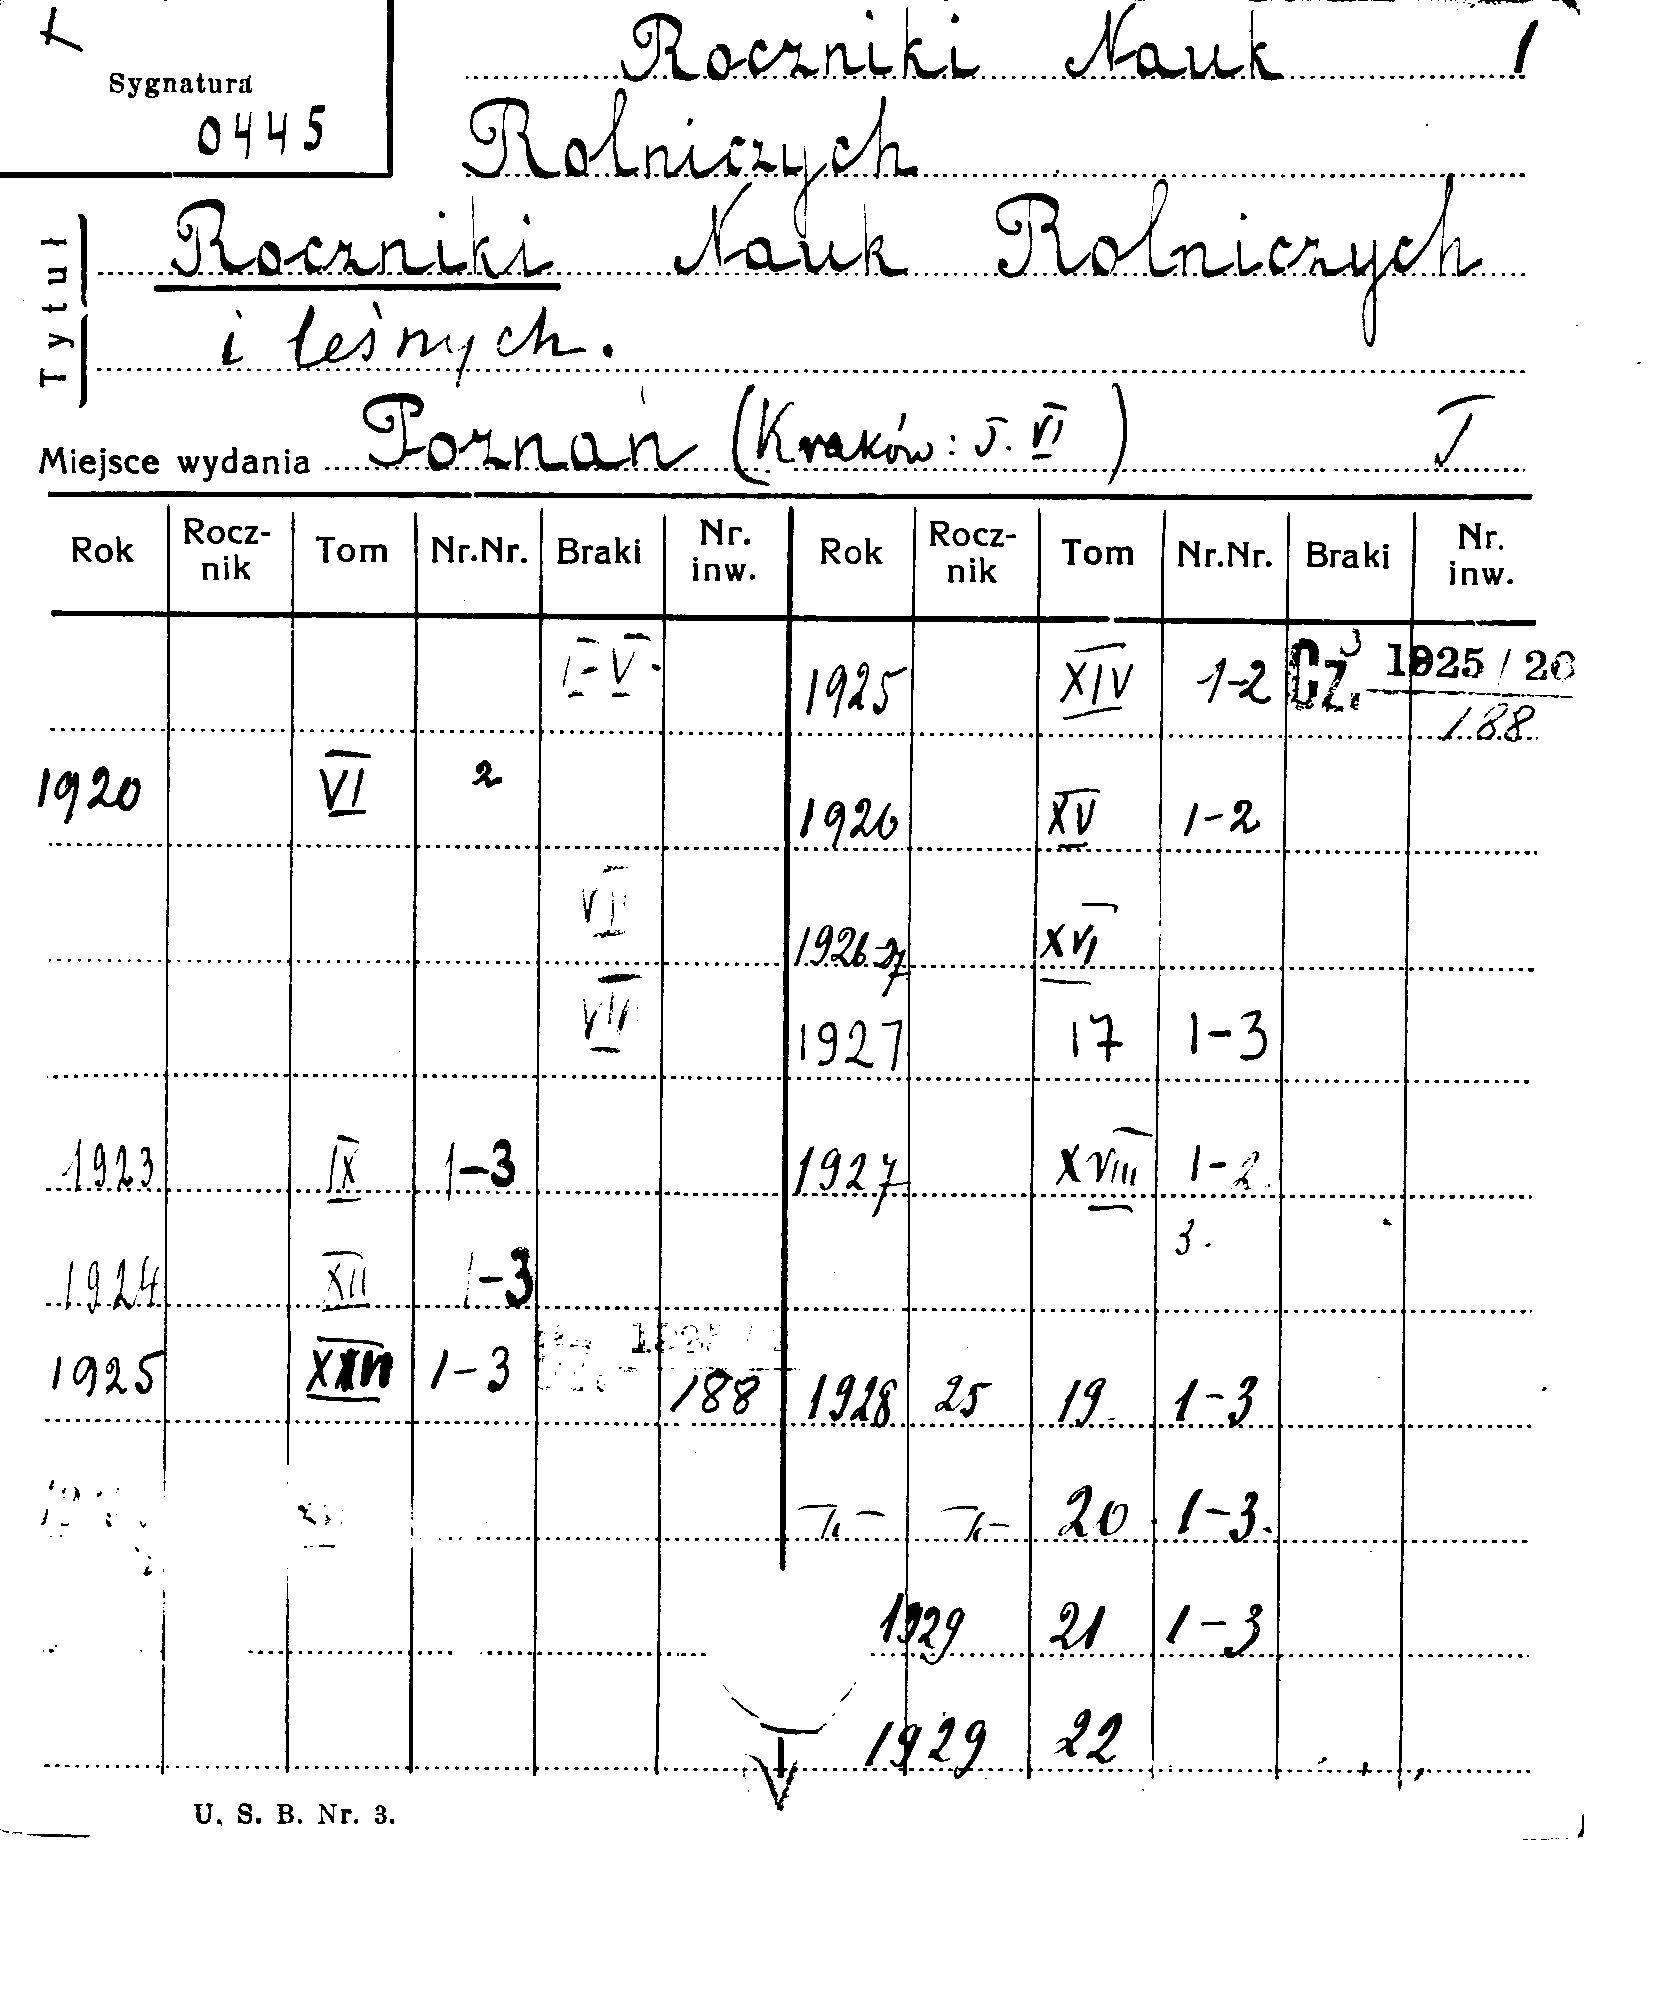 Sygnatura
0445
Roczniki Nauk 1
Rolniczych
Tytuł
Roczniki Nauk Rolniczych
i leśnych.
Miejsce wydania Poznań (Kraków: T. VI) I
Rok Rocz-nik Tom Nr.Nr. Braki Nr. inw. Rok Rocz-nik Tom Nr.Nr. Braki Nr. inw.
I-V. 1925 XIV 1-2 Cz. 1925/26
188
1920 VI 2 1926 XV 1-2
VII 1926-27 XVI
VIII 1927 17 1-3
1923 IX 1-3 1927 XVIII 1-2
3.
1924 XII 1-3
1925 1-3 188 1928 25 19 1-3
20 1-3.
1929 21 1-3
1929 22
U. S. B. Nr. 3.